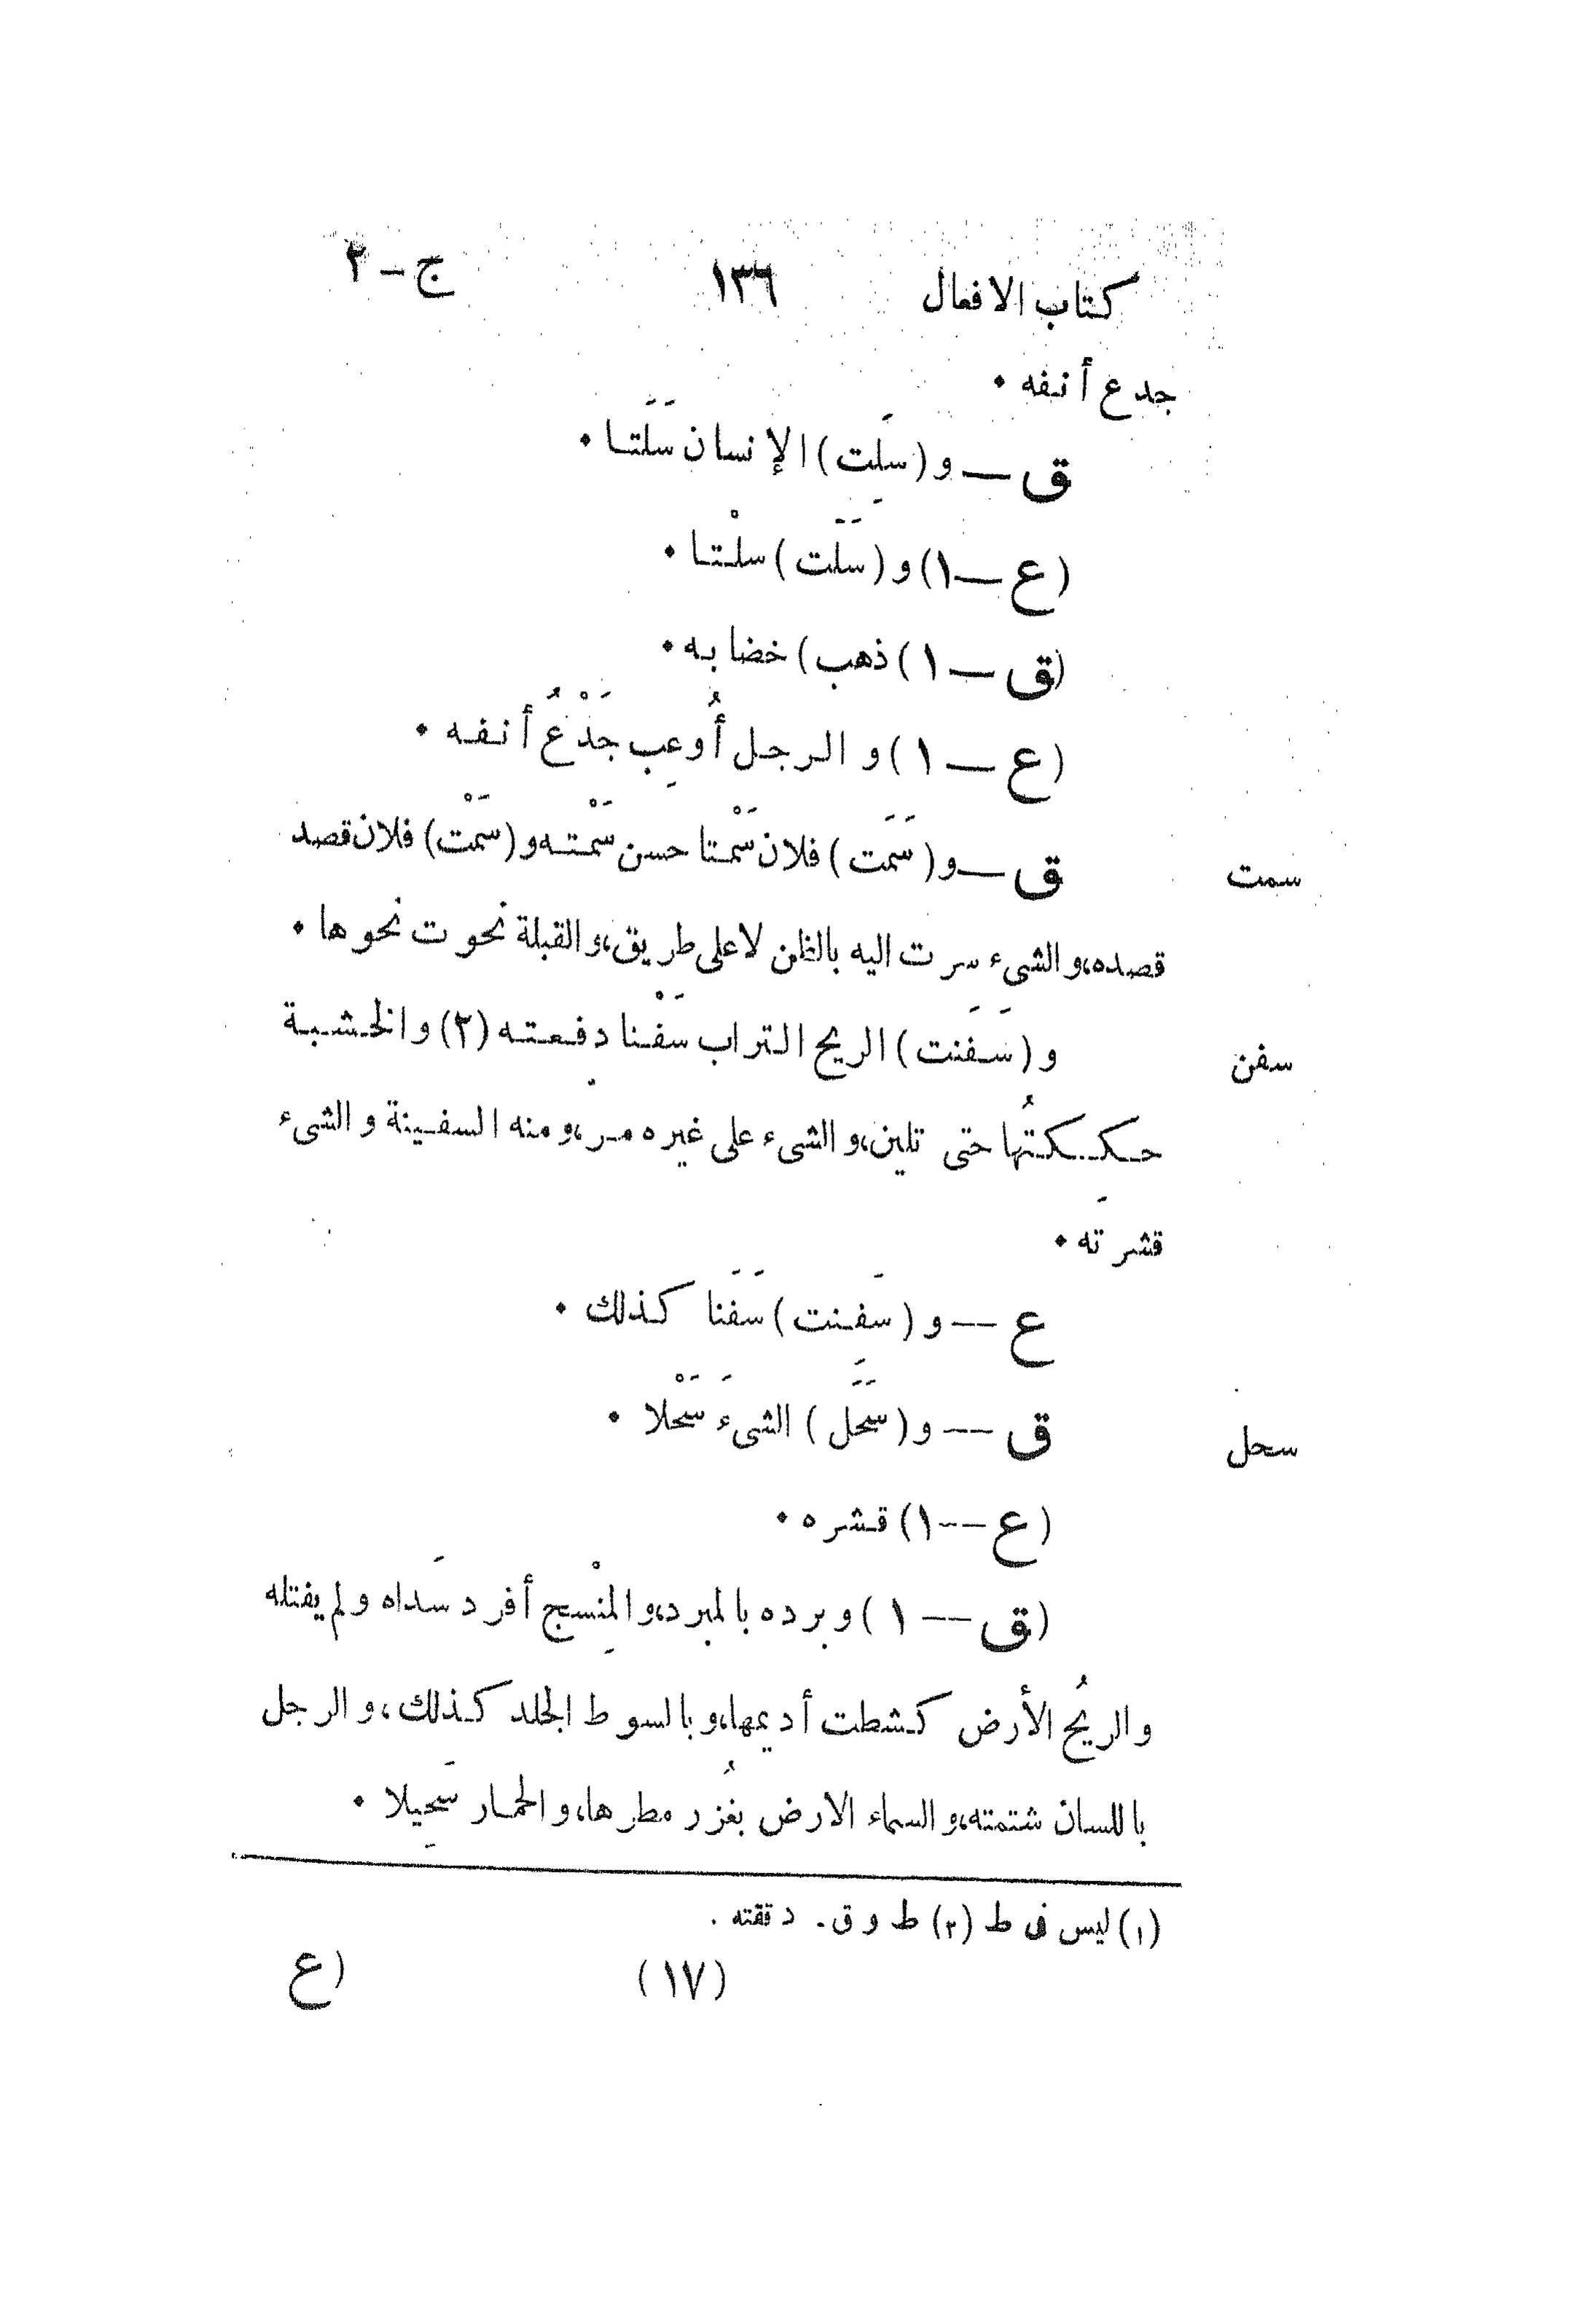 كتاب الافعال ١٣٦ ج - ٢
جدع أنفه •
ق — و (سلِت) الإنسان سَلَتا •
(ع — ١) و (سَلَت) سلْتا •
(ق — ١) ذهب) خضابه •
(ع — ١) و الرجل أُوعِب جَدْعُ أنفه •
سمت ق — و (سَمَت) فلان سَمْتا حسن سَمْته و (سَمْت) فلان قصد
قصده، و الشىء سرت اليه بالظن لا على طريق، و القبلة نحوت نحوها •
سفن و (سَفَنت) الريح التراب سَفْنا دفعته (٢) و الخشبة
حككتُها حتى تلين، و الشىء على غيره مر، و منه السفينة و الشىء
قشرته •
ع — و (سَفِنت) سَفَنا كذلك •
سحل ق — و (سَحَل) الشىءَ سَحْلا •
(ع — ١) قشره •
(ق — ١) و برده بالمبرد، و المِنْسج أفرد سَداه و لم يفتله
و الريحُ الأرض كشطت أديمها، و بالسوط الجلد كذلك، و الرجل
باللسان شتمته، و السماء الارض بغُزر مطرها، و الحمار سَحِيلا •
(١) ليس فى ط (٢) ط و ق - دققته .
(١٧) (ع